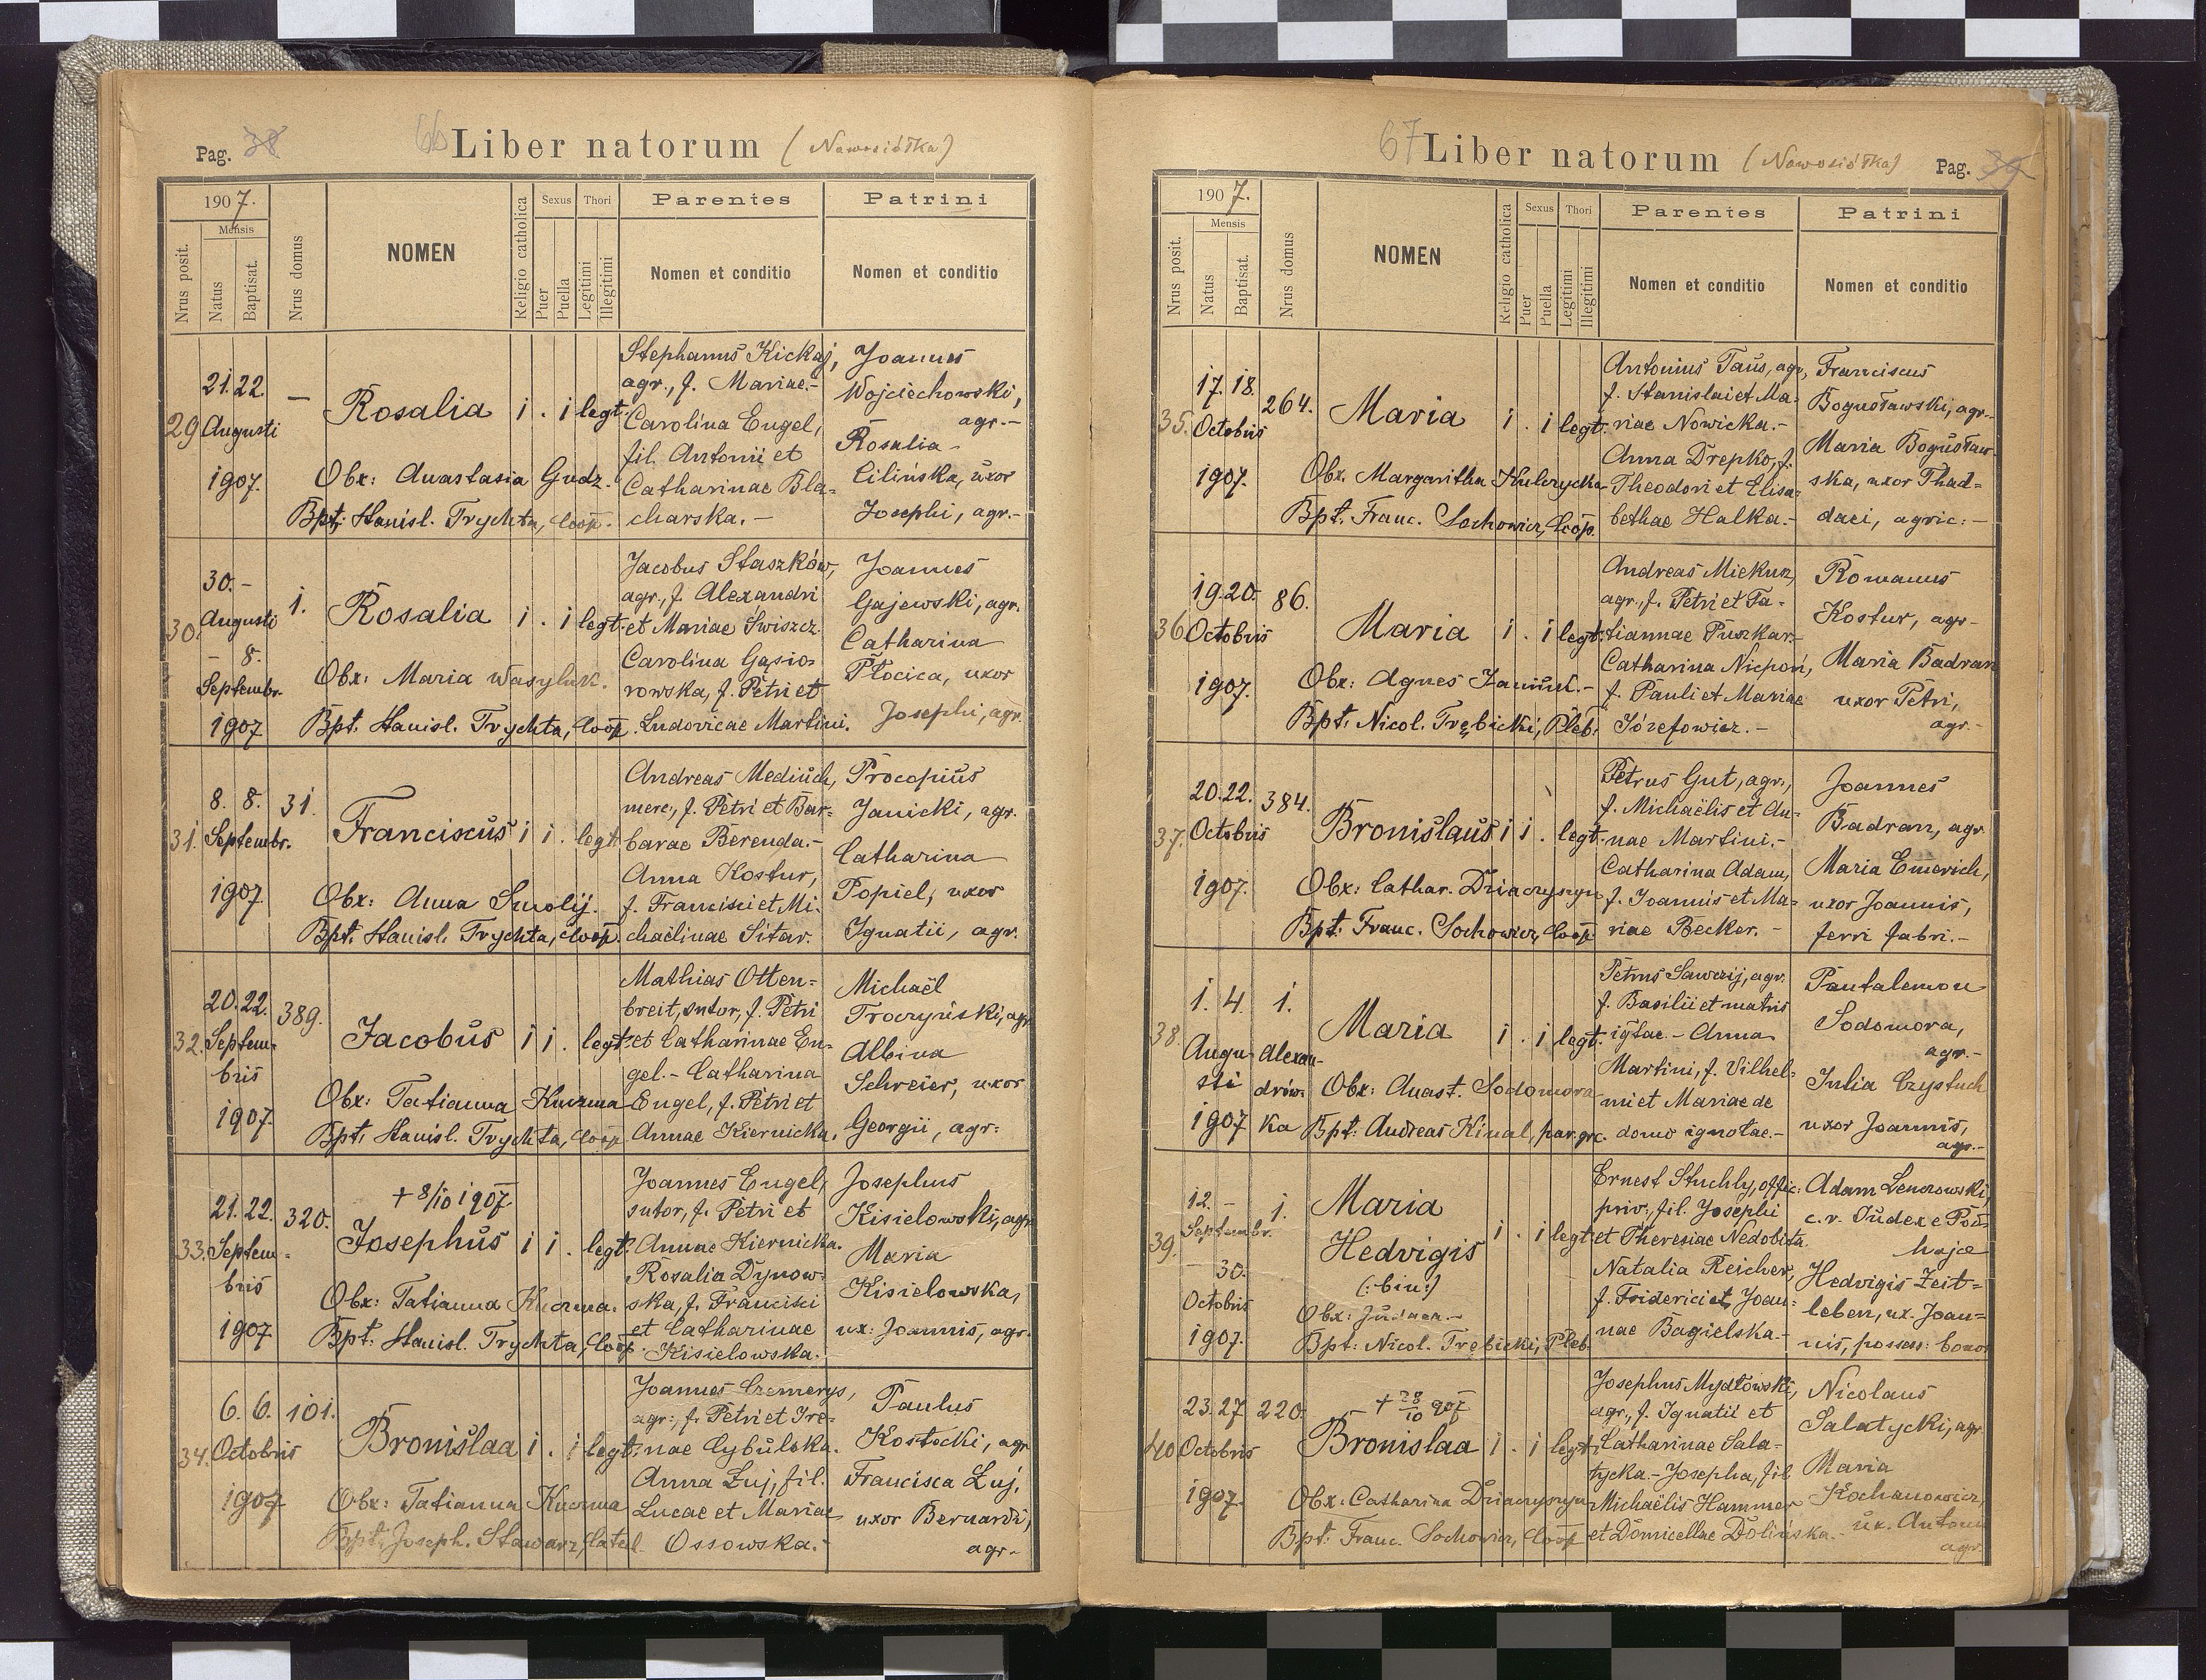 Pag. 38
66 Liber natorum (Nowosiółka)
1907.
Nrus posit.
Mensis
Natus
Baptisat.
Nrus domus
NOMEN
Religio catholica
Sexus
Puer
Puella
Thori
Legitimi
Illegitimi
Parentes
Nomen et conditio
Patrini
Nomen et conditio
29
21. 22.
Augusti
1907.
—
Rosalia
i . i legt.
Obx: Anastasia Gudz.
Bpt: Stanisl. Trychta, Coop.
Stephanus Kickaj,
agr., f. Mariae.-
Carolina Engel,
fil. Antonii et
Catharinae Bla-
charska.-
Joannes
Wojciechowski,
agr.-
Rosalia
Cilińska, uxor
Josephi, agr.-
30.
30.-
Augusti
- 8.
Septembr.
1907
1.
Rosalia
i . i legt.
Obx: Maria Wasyluk.
Bpt. Stanisl. Trychta, Coop.
Jacobus Staszków,
agr., f. Alexandri
et Mariae Świszcz.
Carolina Gąsio-
rowska, f. Petri et
Ludovicae Martini.
Joannes
Gajewski, agr.
Catharina
Płocica, uxor
Josephi, agr.
31.
8. 8.
Septembr.
1907
31.
Franciscus
i i . legt.
Obx: Anna Smolij.
Bpt. Stanisl. Trychta, Coop.
Andreas Mediuch,
merc., f. Petri et Bar-
barae Berenda.-
Anna Kostur,
f. Francisci et Mi-
chaëlinae Sitar.
Procopius
Janicki, agr.
Catharina
Popiel, uxor
Ignatii, agr.
32.
20. 22.
Septem-
bris
1907.
389.
Jacobus
i i . legt.
Obx: Tatianna Kuzma
Bpt. Stanisl. Trychta, Coop
Mathias Otten-
breit, sutor, f. Petri
et Catharinae En-
gel.- Catharina
Engel, f. Petri et
Annae Kiernicka.
Michaël
Troczyński, agr.
Albina
Schreier, uxor
Georgii, agr.
33.
21. 22.
Septem-
bris
1907
320.
+ 8/10 1907
Josephus
i i . legt.
Obx: Tatianna Kuzma.
Bpt: Stanisl. Trychta, Coop.
Joannes Engel,
sutor, f. Petri et
Annae Kiernicka.
Rosalia Dynow-
ska, f. Francisci
et Catharinae
Kisielowska.
Josephus
Kisielowski, agr.
Maria
Kisielowska,
ux: Joannis, agr.
34.
6. 6.
Octobris
1907
101.
Bronislaa
i . i legt.
Obx: Tatianna Kuzma
Bpt. Joseph. Stawarz,
Joannes Czemerys,
agr., f. Petri et Ire-
nae Cybulska.
Anna Łuj, fil.
Lucae et Mariae
Ossowska.-
Paulus
Kostecki, agr
Francisca Łuj,
uxor Bernardi,
agr.
67 Liber natorum (Nowosiółka)
Pag. 39
1907.
Nrus posit.
Mensis
Natus
Baptisat.
Nrus domus
NOMEN
Religio catholica
Sexus
Puer
Puella
Thori
Legitimi
Illegitimi
Parentes
Nomen et conditio
Patrini
Nomen et conditio
35.
17. 18.
Octobris
1907.
264.
Maria
i . i legt.
Obx. Margaritha Kulczycka
Bpt. Franc. Sochowicz, Coop.
Antonius Taus, agr,
f. Stanislai et Ma-
riae Nowicka.-
Anna Drepko, f.
Theodori et Elisa-
bethae Halka.-
Franciscus
Bogusławski, agr.-
Maria Bogusław-
ska, uxor Thad-
daei, agric:-
36
19. 20.
Octobris
1907.
86.
Maria
i . i legt.
Obx: Agnes
Bpt. Nicol. Trębicki, Pleb.
Andreas Miekusz,
agr., f. Petri et Ta-
tiannae Puszkar.-
Catharina Niepoń,
f. Pauli et Mariae
Józefowicz.-
Romanus
Kostur, agr-
Maria Badran
uxor Petri,
agr.-
37.
20. 22.
Octobris
1907.
384.
Bronislaus
i i . legt.
Obx: Cathar. Dziaczyszyn
Bpt: Franc. Sochowicz, Coop
Petrus Gut, agr.,
f. Michaëlis et An-
nae Martini.-
Catharina Adam,
f. Joannis et Ma-
riae Becker.-
Joannes
Badran, agr.
Maria Emerich,
uxor Joannis,
ferri fabri.-
38.
1. 4.
Augu-
sti
1907
1.
Alexan-
drów-
ka
Maria
i . i legt.
Obx: Anast. Sodomora
Bpt: Andreas Kinal, par. gr. c.
Petrus Sawczij, agr.
f. Basilii et matris
igtae.- Anna
Martini, f. Vilhel-
mi et Mariae de
domo ignotae.-
Pantalemon
Sodomora,
agr.-
Julia Czystuch
uxor Joannis,
agr.-
39.
12. -
Septembr.
- 30.
Octobris
1907.
1.
Maria
Hedvigis
(:bin:)
i . i legt.
Obx: Judaea.-
Bpt: Nicol. Trębicki, Pleb.
Ernest Stuchly, offic:
priv., fil. Josephi
et Theresiae Nedobita
Natalia Reicher,
f. Friderici et Joan-
nae Bagielska.-
Adam Lenczowski,
c. r. Judex e Pod-
hajce
Hedvigis Zeit-
leben, ux. Joan-
nis, possess: bonor.
40
23. 27
Octobris
1907.
220.
+ 28/10 907
Bronislaa
i . i legt.
Obx: Catharina Dziaczyszyn
Bpt: Franc. Sochowicz, Coop
Josephus Mydłowski,
agr., f. Ignatii et
Catharinae Sala-
tycka.- Josepha, fil.
Michaëlis Hammer
et Domicellae Dolińska.-
Nicolaus
Salatycki, agr.
Maria
Kochanowicz,
ux. Antonii
agr.